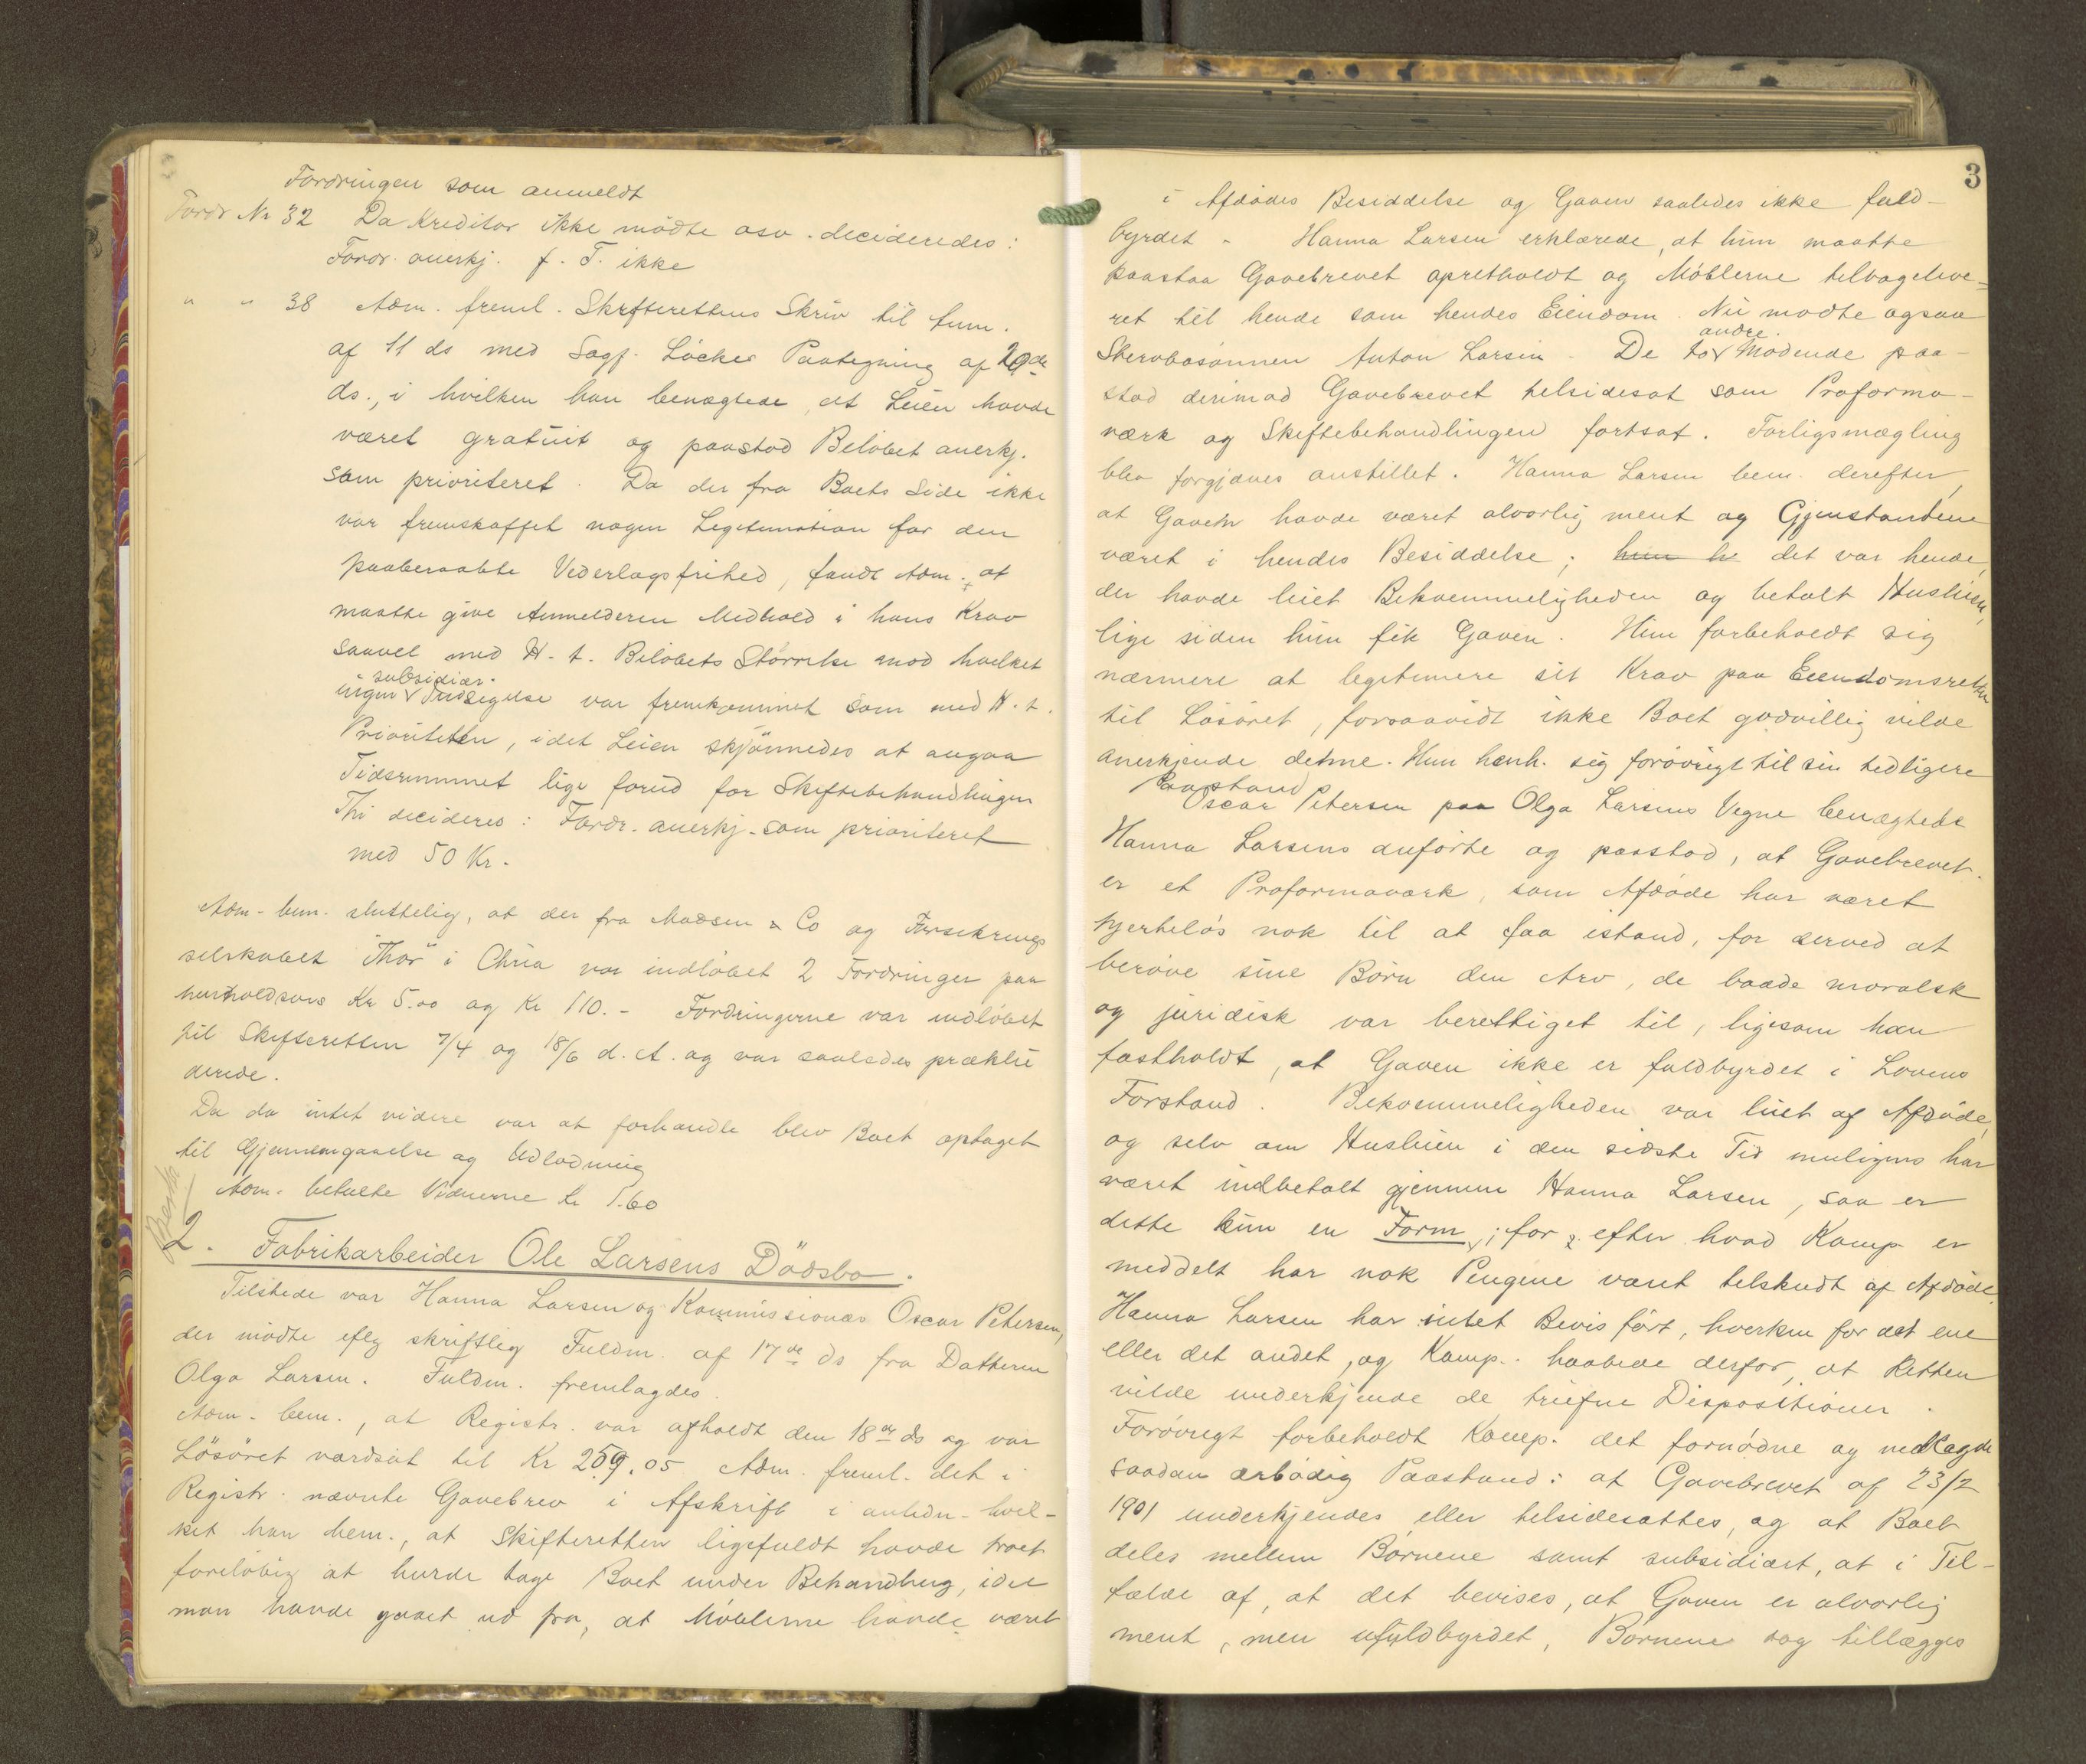 Fordringen som anmeldt
Fordr Nr 32 Da Kreditor ikke mödte osv. decideredes:
Fordr. anerkj. f. T. ikke
" " 38 Adm. freml. Skifterettens Skriv til ham.
af 11 ds med Sagf. Löckes Paategning af 20de
ds., i hvilken han benægtede, at Leien havde
været gratuit og paastod Belöbet anerkj.
som prioriteret. Da der fra Boets Side ikke
var fremskaffet nogen Legitimation for den
paaberaabte Vederlagsfrihed, fandt Adm. at
maatte give Anmelderen Medhold i hans Krav
saavel med H. t. Belöbets Störrelse mod hvilket
subsidiær.
ingen Indsigelse var fremkommet som med H. t.
Prioriteten, idet Leien skjönnedes at angaa
Tidsrummet lige forud for Skiftebehandlingen
Thi decideres: Fordr. anerkj. som prioriteret
med 50 Kr.
Adm. bem. sluttelig, at der fra Madsen & Co og Forsikrings
selskabet "Thor" i Chria var indlöbet 2 Fordringer paa
henholdsvis Kr 5.00 og Kr 110.- Fordringerne var indlöbet
til Skifteretten 7/4 og 18/6 d. A. og var saaledes præklu
derede.
Da da intet videre var at forhandle blev Boet optaget
til Gjennemgaaelse og Udlodning
Adm. betalte Vidnerne Kr 1.60
2. Fabrikarbeider Ole Larsens Dödsbo.
Tilstede var Hanna Larsen og Kommissionær Oscar Petersen,
der mödte eflg skriftlig Fuldm. af 17de ds fra Datteren
Olga Larsen. Fuldm. fremlagdes.
Adm. bem., at Registr. var afholdt den 18de ds og var
Lösöret værdsat til Kr 259.05 Adm. freml. det i
Registr. nævnte Gavebrev i Afskrift i anledn. hvil-
ket han bem., at Skifteretten ligefuldt havde troet
foreløbig at burde tage Boet under Behandling, idet
man havde gaaet ud fra, at Möblerne havde været
3
i Afdödes Besiddelse og Gaven saaledes ikke fuld-
byrdet. Hanna Larsen erklærede, at hun maatte
paastaa Gavebrevet opretholdt og Möblerne tilbageleve-
ret til hende som hendes Eiendom. Nu mödte ogsaa
andre.
Stervbosönnen Anton Larsen. De to Mödende paa-
stod derimod Gavebrevet tilsidesat som Proforma-
værk og Skiftebehandlingen fortsat. Forligsmægling
blev forgjæves anstillet. Hanna Larsen bem. derefter,
at Gaven havde været alvorlig ment og Gjenstandene
været i hendes Besiddelse; hun h det var hende,
der havde leiet Bekvemmeligheden og betalt Husleien,
lige siden hun fik Gaven. Hun forbeholdt sig
nærmere at legitimere sit Krav paa Eiendomsretten
til Lösöret, forsaavidt ikke Boet godvillig vilde
anerkjende denne. Hun henh. sig forövrigt til sin tidligere
Paastand
Oscar Petersen paa Olga Larsens Vegne benægtede
Hanna Larsens anförte og paastod, at Gavebrevet
er et Proformaværk, som Afdöde har været
hjertelös nok til at faa istand, for derved at
beröve sine Börn den Arv, de baade moralsk
og juridisk var berettiget til, ligesom han
fastholdt, at Gaven ikke er fuldbyrdet i Lovens
Forstand. Bekvemmeligheden var leiet af Afdöde,
og selv om Husleien i den sidste Tid muligens har
været indbetalt gjennem Hanna Larsen, saa er
dette kun en Form; for efter hvad Komp. er
meddelt har nok Pengene været tilskudt af Afdöde.
Hanna Larsen har intet Bevis fört, hverken for det ene
eller det andet, og Komp. haabede derfor, at Retten
vilde underkjende de trufne Dispositioner.
Forövrigt forbeholdt Komp. det fornödne og nedlagde
saadan ærbödig Paastand: at Gavebrevet af 23/2
1901 underkjendes eller tilsidesattes, og at Boet
deles mellem Börnene samt subsidiært, at i Til-
fælde af, at det bevises, at Gaven er alvorlig
ment, men ufuldbyrdet, Börnene dog tillægges